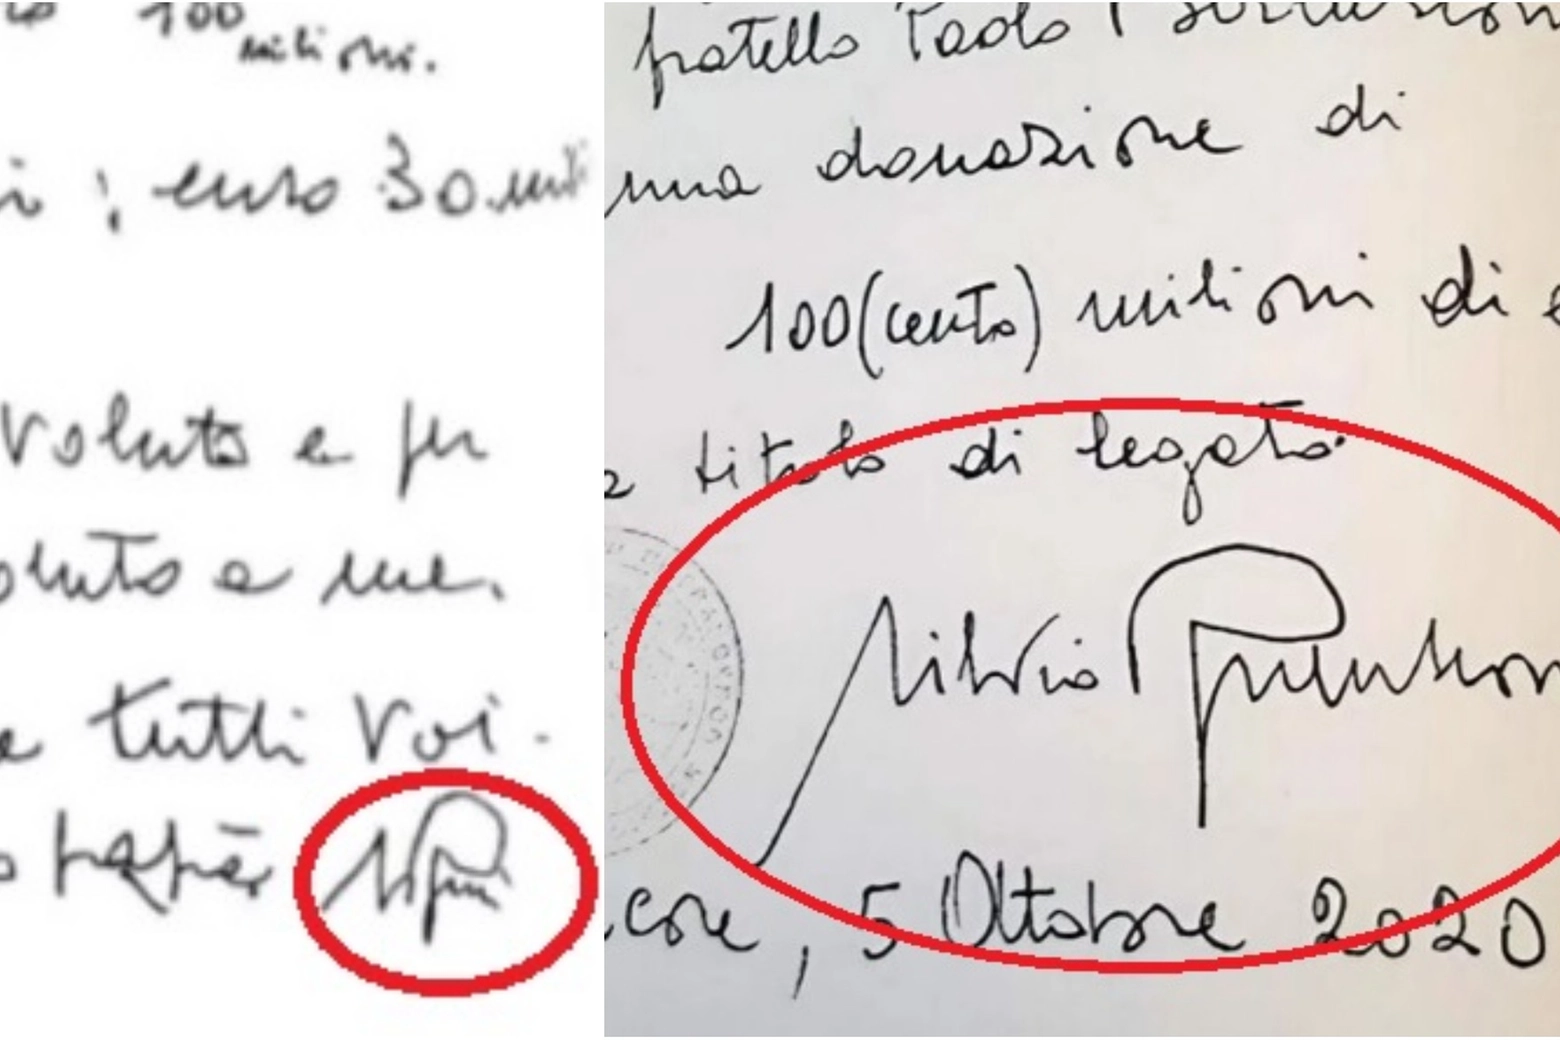 100
milioni.
i ; euro 30 mili
voluto e per
oluto a me.
a tutti voi.
o papà
fratello Paolo
una donazione di
100 (cento) milioni di e
a titolo di legato.
Silvio Berluscon
core, 5 Ottobre 2020